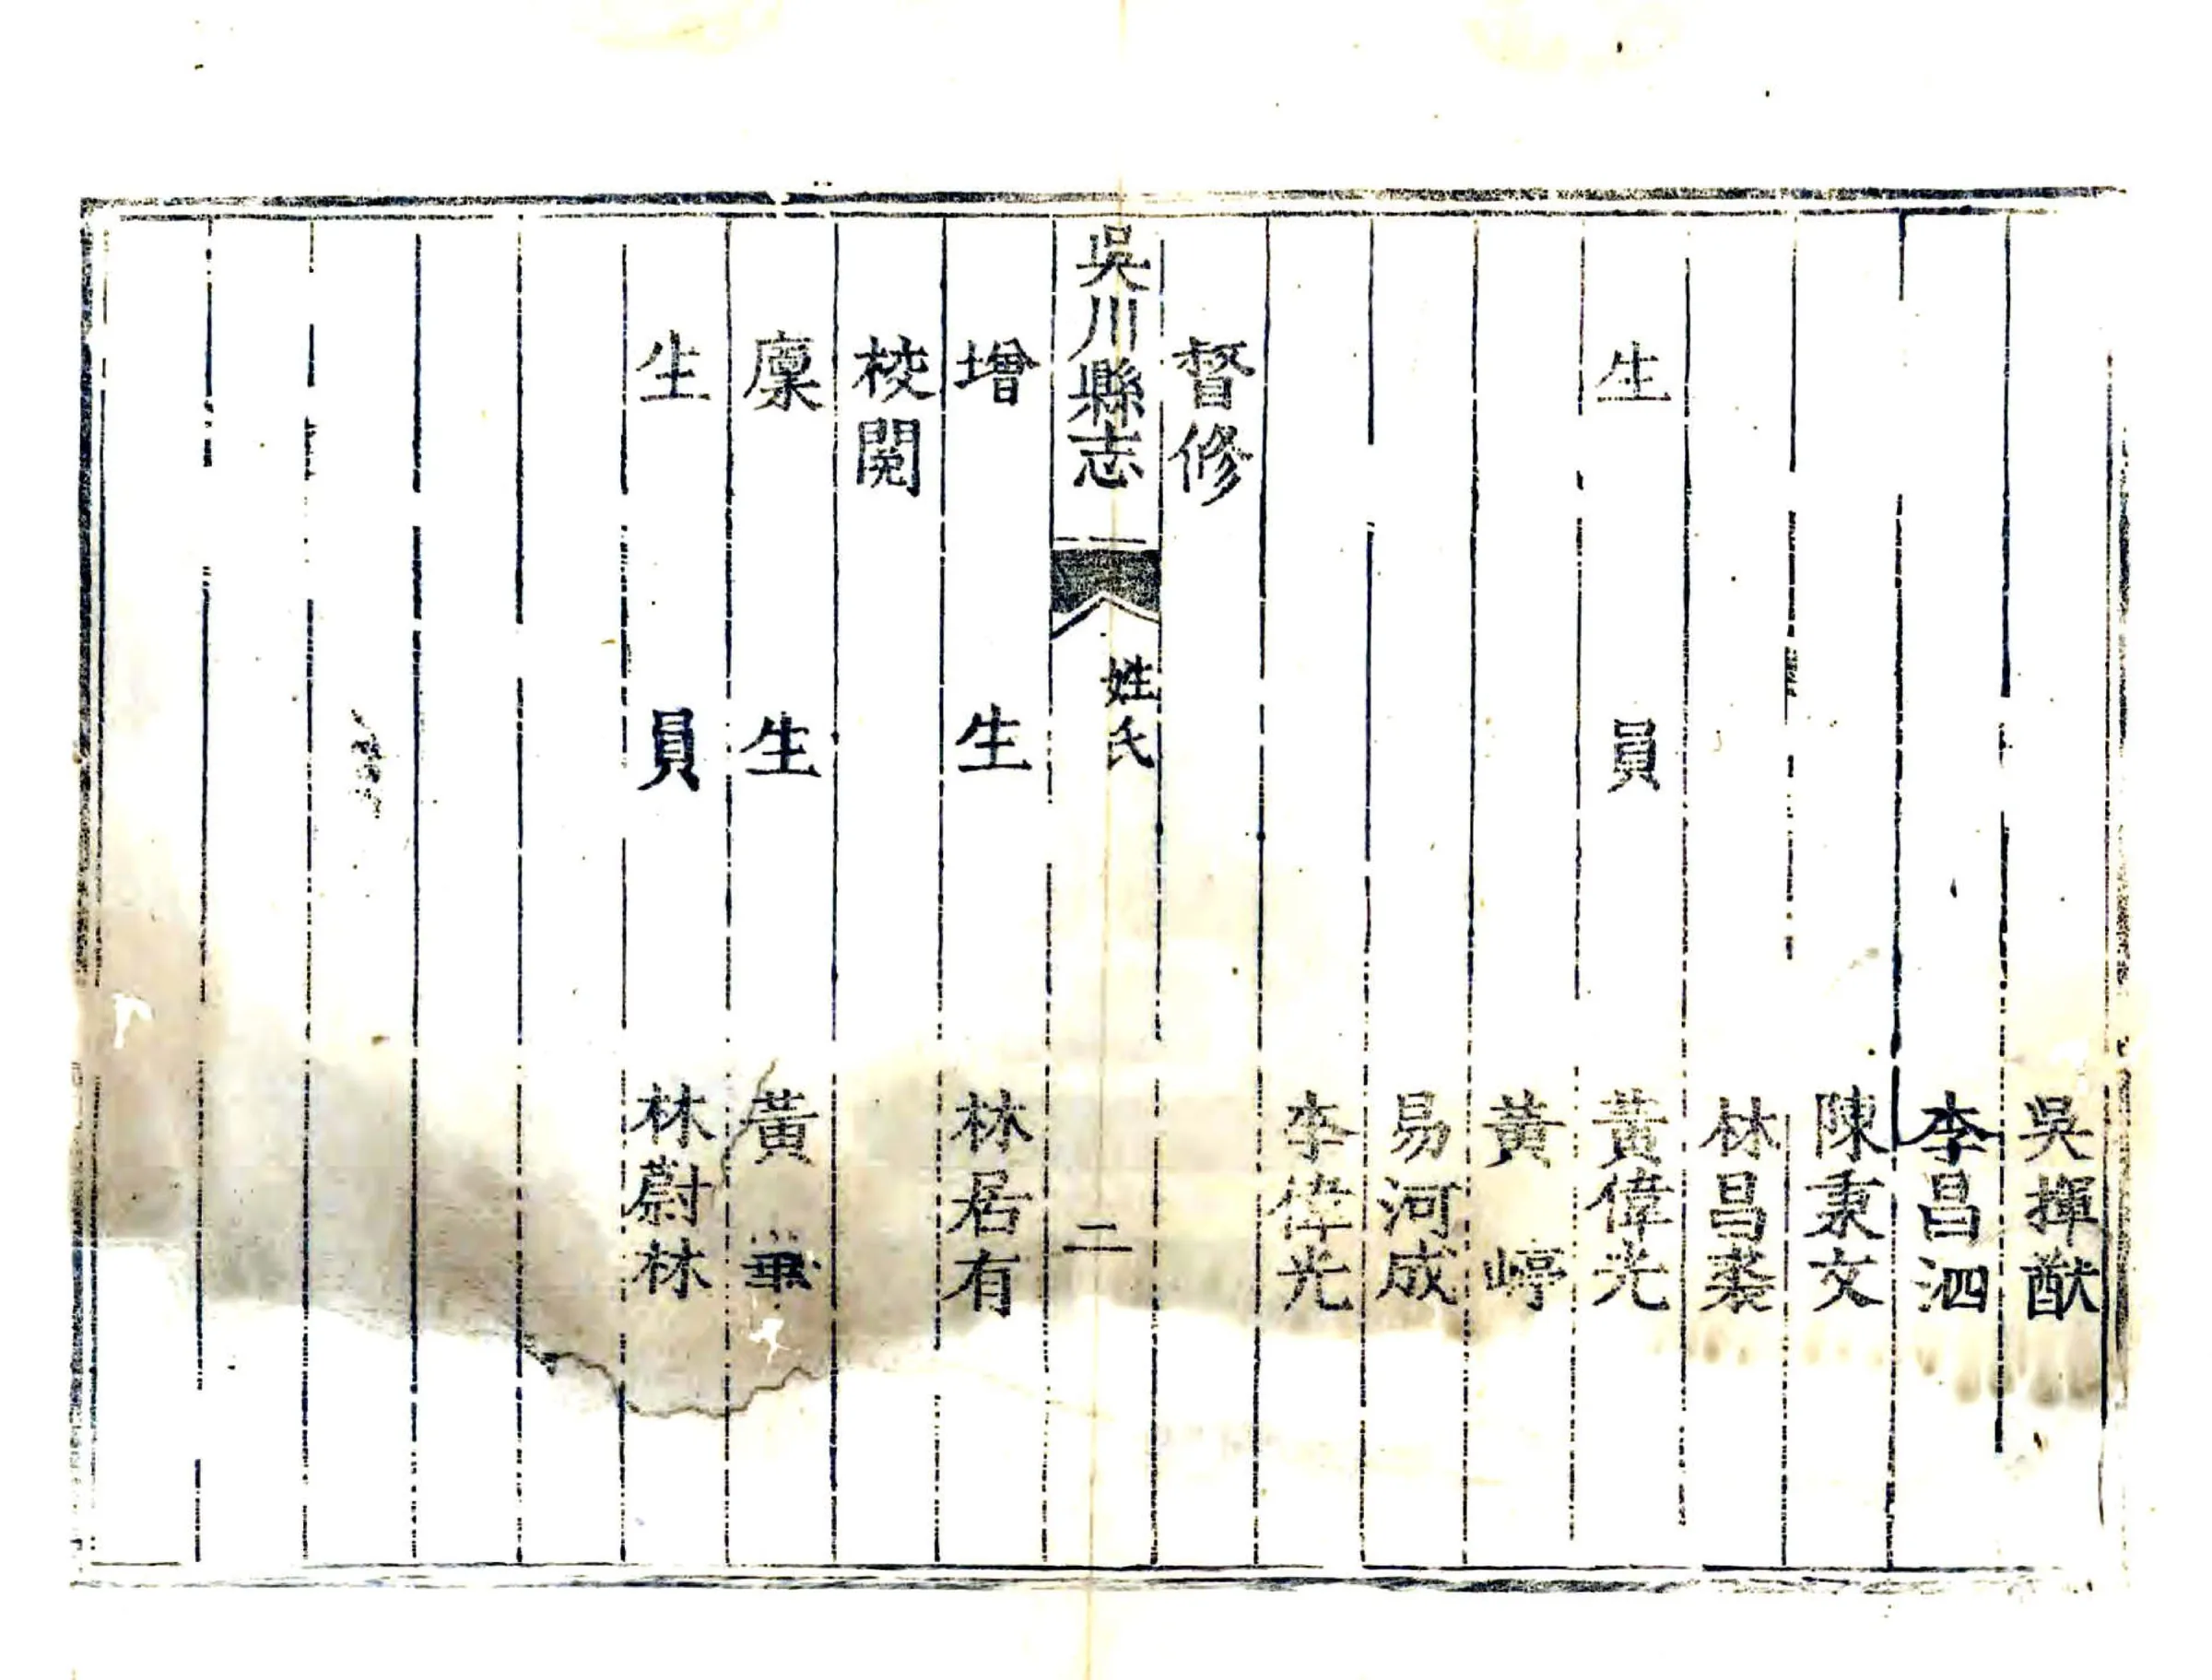 吳揮猷
李昌泗
陳秉文
林昌棻
生員 黃偉光
黃嵉
易河成
李偉光
督修
吳川縣志 姓氏 二
增生 林居有
校閱
廩生 黃
生員 林蔚林